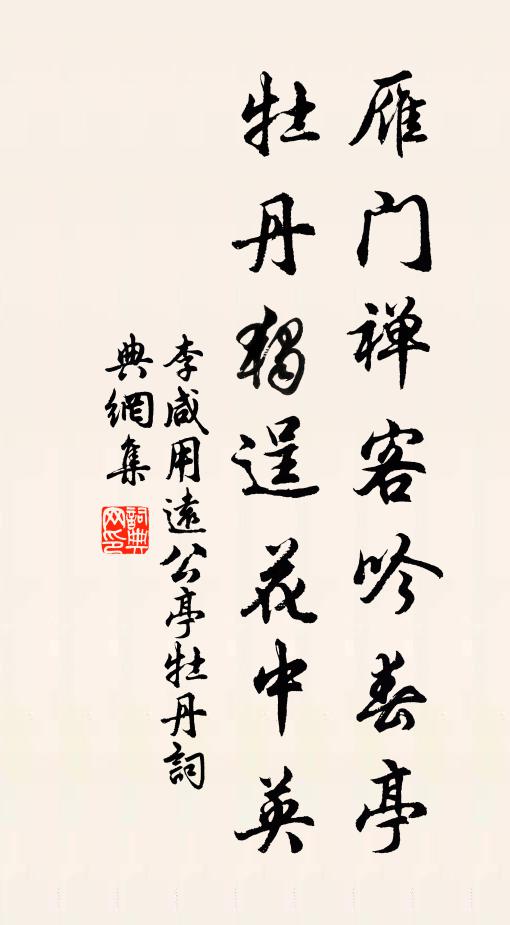 雁门禅客吟春亭
牡丹独逞花中英
李咸用遠公亭牡丹詞
典網集
詞典
网印